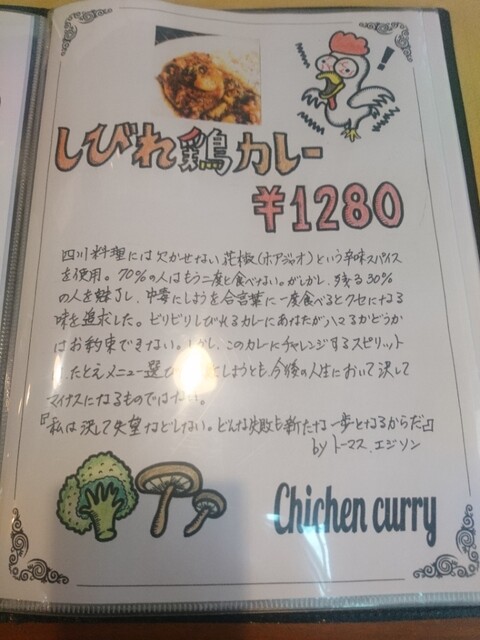 しびれ鶏カレー
¥1280
四川料理には欠かせない花椒(ホアジャオ)という辛味スパイス
を使用。70%の人はもう二度と食べない。がしかし、残る30%
の人を魅了し、中毒にしようを合言葉に一度食べるとクセになる
味を追求した。ビリビリしびれるカレーにあなたがハマるかどうか
はお約束できない。しかし、このカレーにチャレンジするスピリット
たとえメニュー選び しようとも、今後の人生において決して
マイナスになるものではない。
『私は決して失望などしない。どんな失敗も新たな一歩となるからだ』
by トーマス.エジソン
Chichen curry